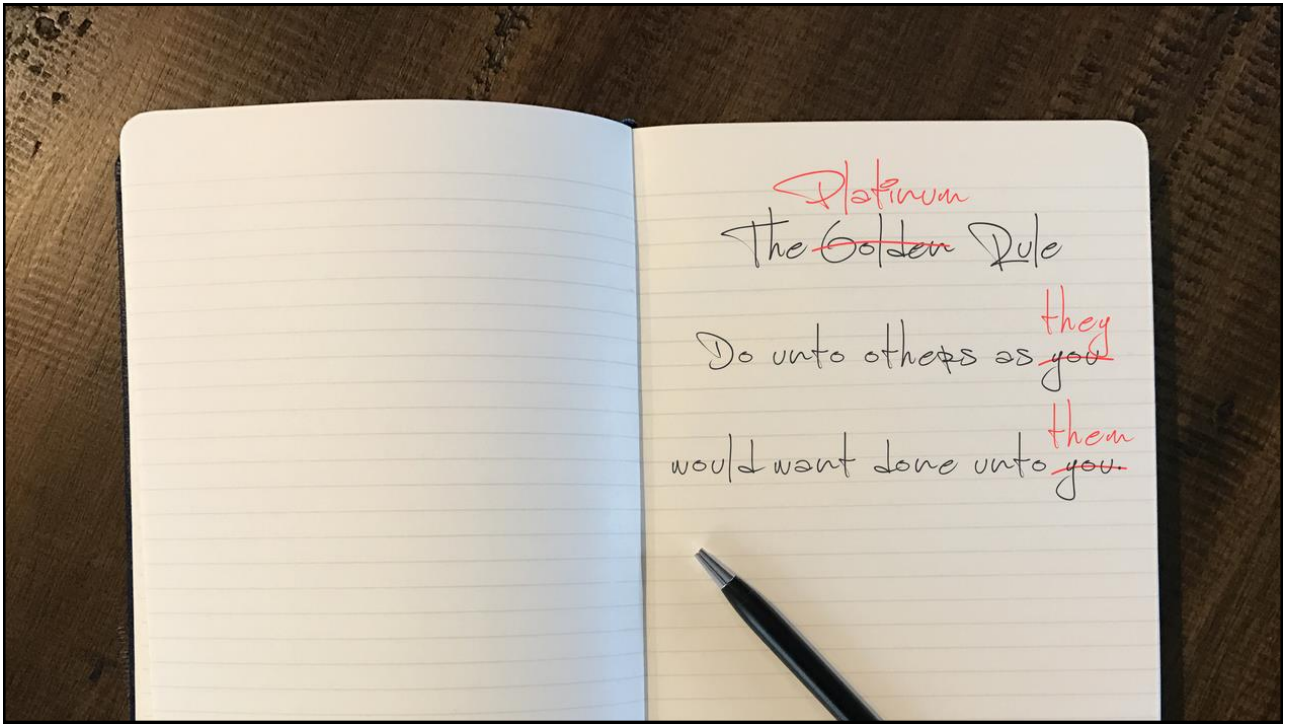 Platinum
The Golden Rule
they
Do unto others as you
them
would want done unto you.